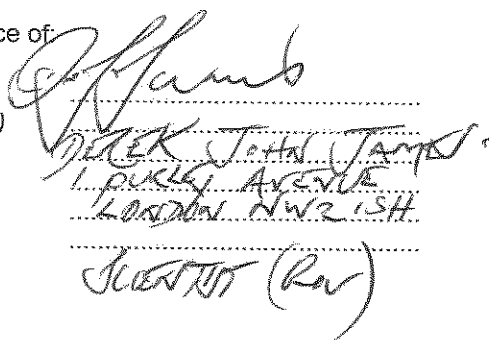 ce of:
)
DEREK JOHN JAMES
1 PURLEY AVENUE
LONDON NW2 1SH
SCIENTIST (Rev)